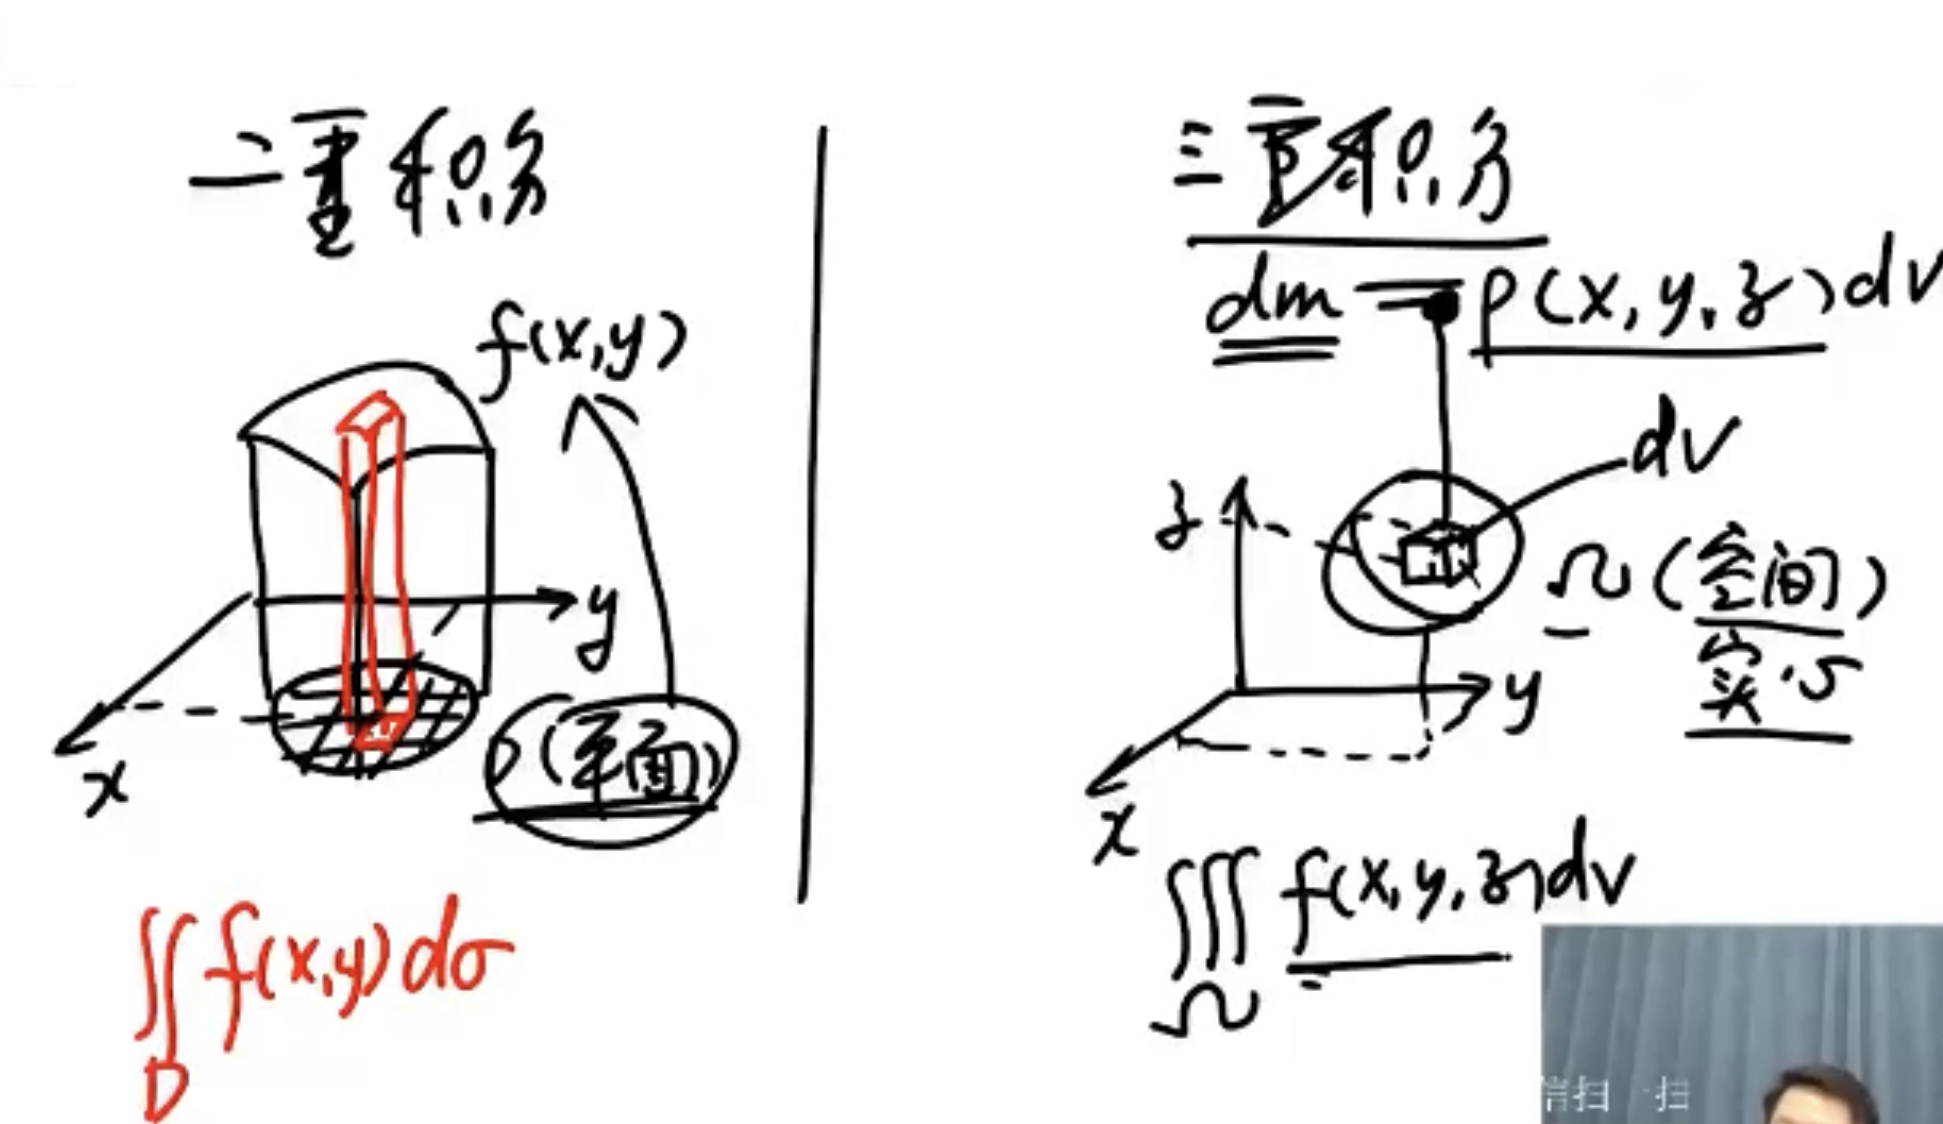 二重积分
f(x,y)
y
x
D(平面)
∬ f(x,y)dσ
D
三重积分
dm = ρ(x,y,z)dv
dv
z
Ω(空间)
实心
y
x
∭ f(x,y,z)dv
Ω
信扫一扫